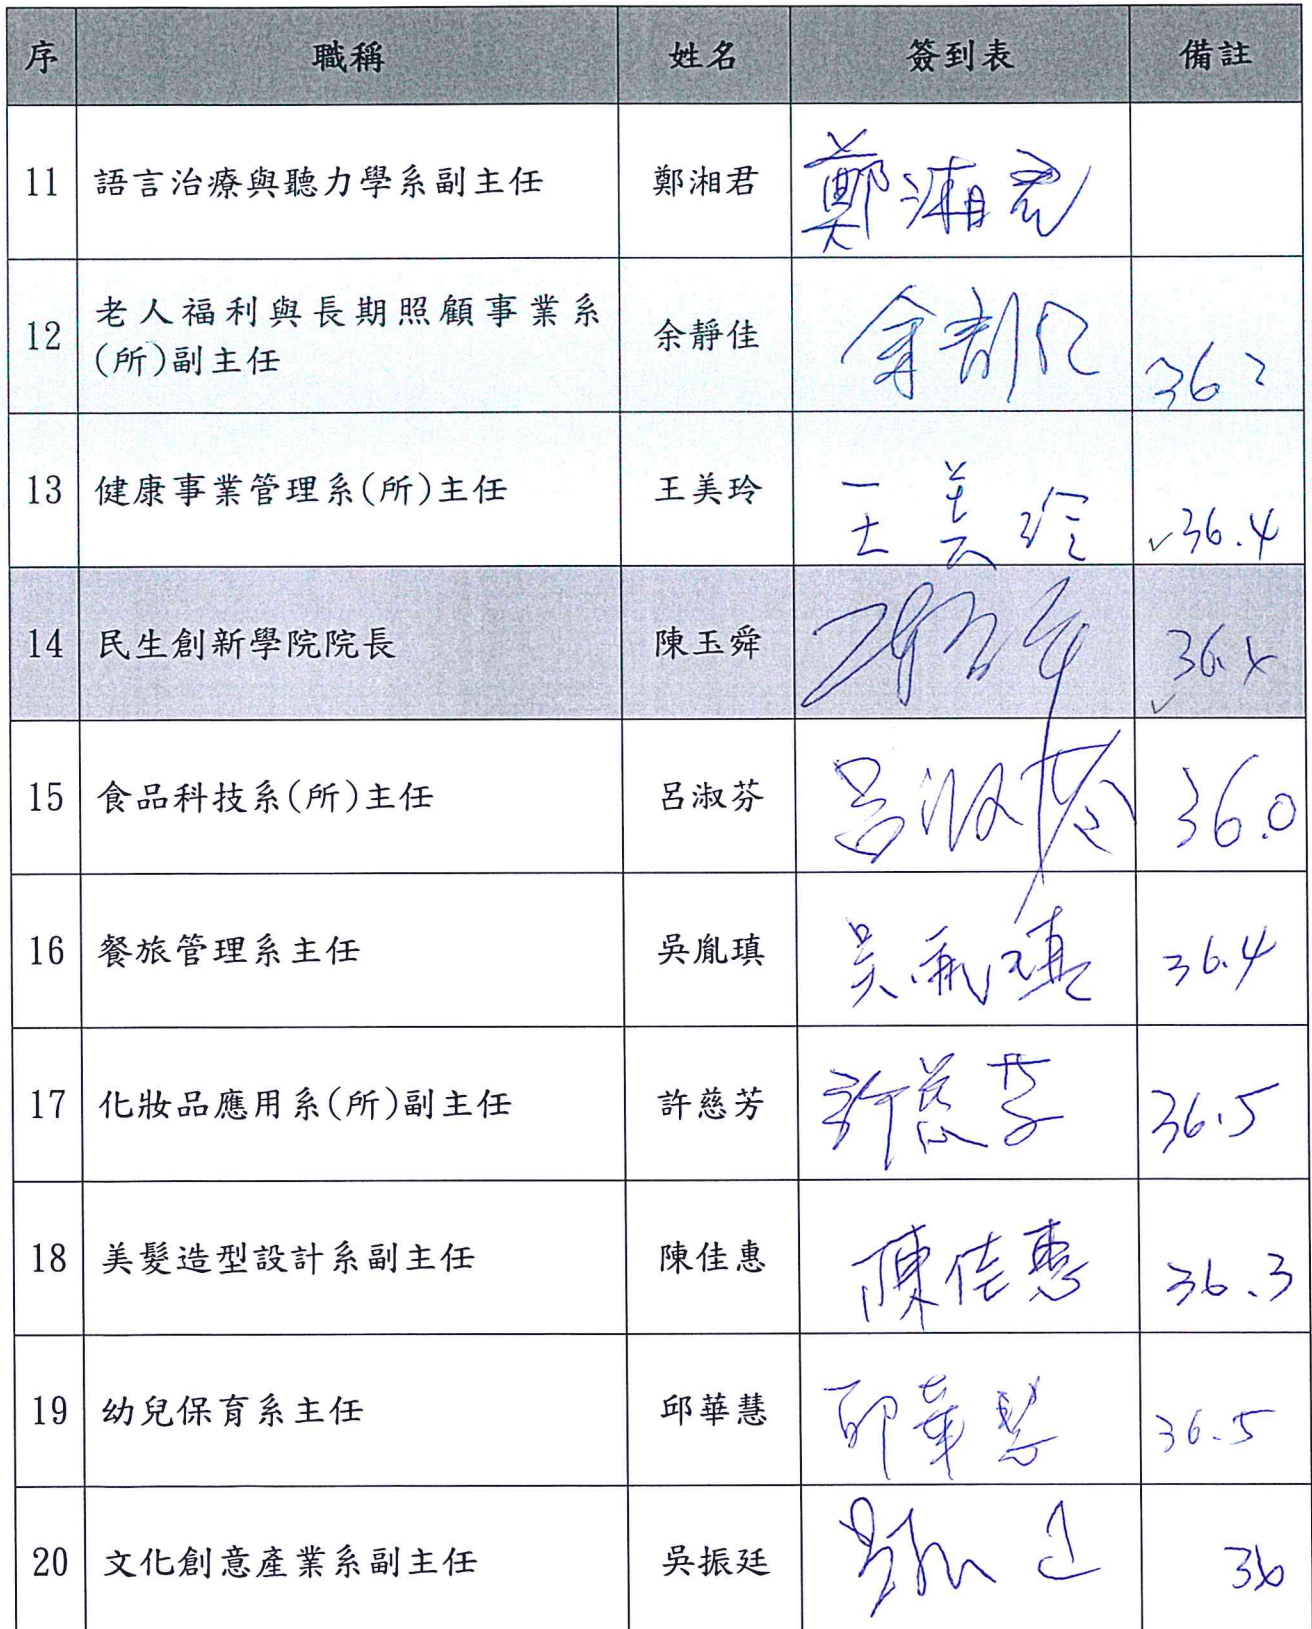 序 職稱 姓名 簽到表 備註
11 語言治療與聽力學系副主任 鄭湘君 鄭湘君
12 老人福利與長期照顧事業系(所)副主任 余靜佳 36.2
13 健康事業管理系(所)主任 王美玲 王美玲 ✓36.4
14 民生創新學院院長 陳玉舜 36.4 ✓
15 食品科技系(所)主任 呂淑芬 呂淑芬 36.0
16 餐旅管理系主任 吳胤瑱 吳胤瑱 36.4
17 化妝品應用系(所)副主任 許慈芳 許慈芳 36.5
18 美髮造型設計系副主任 陳佳惠 陳佳惠 36.3
19 幼兒保育系主任 邱華慧 邱華慧 36.5
20 文化創意產業系副主任 吳振廷 36